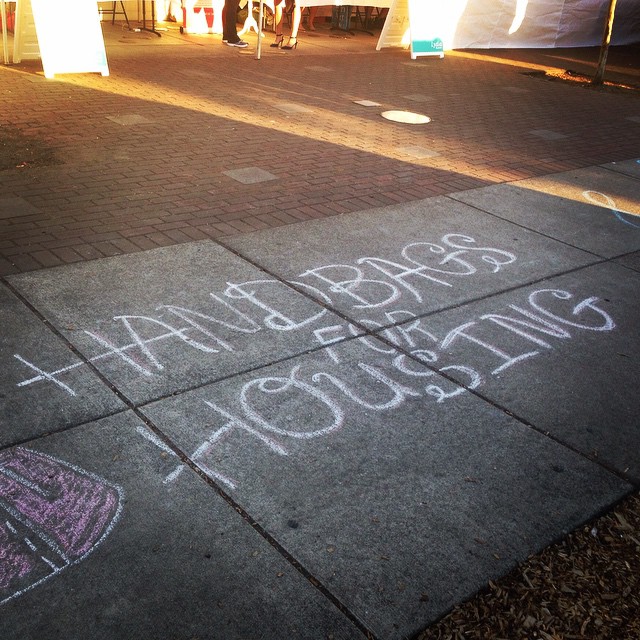 HANDBAGS
FOR
HOUSING